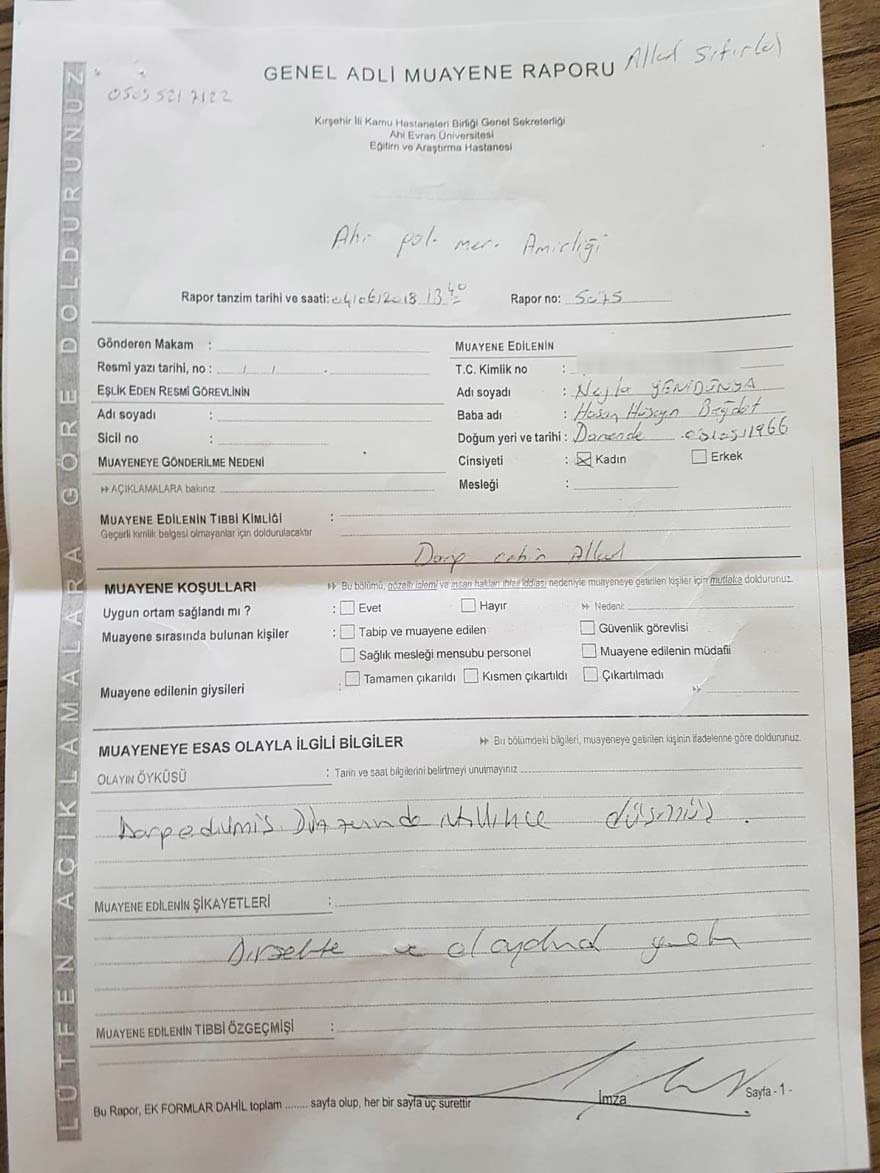 GENEL ADLİ MUAYENE RAPORU
0505 521 7122
Kırşehir İli Kamu Hastaneleri Birliği Genel Sekreterliği
Ahi Evran Üniversitesi
Eğitim ve Araştırma Hastanesi
Ahi pol. mer. Amirliği
Rapor tanzim tarihi ve saati: 04/06/2018 13 40 Rapor no: 5075
Gönderen Makam :
Resmi yazı tarihi, no : / / .
EŞLİK EDEN RESMİ GÖREVLİNİN
Adı soyadı :
Sicil no :
MUAYENEYE GÖNDERİLME NEDENİ
AÇIKLAMALARA bakınız
MUAYENE EDİLENİN
T.C. Kimlik no :
Adı soyadı : Nejla YENİDÜNYA
Baba adı : Hasan Hüseyn
Doğum yeri ve tarihi : Darende 03/05/1966
Cinsiyeti : Kadın Erkek
Mesleği :
MUAYENE EDİLENİN TIBBİ KİMLİĞİ :
Geçerli kimlik belgesi olmayanlar için doldurulacaktır
Darp
MUAYENE KOŞULLARI Bu bölümü, gözaltı işlemi ve insan hakları ihlali iddiası nedeniyle muayeneye getirilen kişiler için mutlaka doldurunuz.
Uygun ortam sağlandı mı ? : Evet Hayır Nedeni:
Muayene sırasında bulunan kişiler : Tabip ve muayene edilen Güvenlik görevlisi
Sağlık mesleği mensubu personel Muayene edilenin müdafii
Muayene edilenin giysileri : Tamamen çıkarıldı Kısmen çıkartıldı Çıkartılmadı
MUAYENEYE ESAS OLAYLA İLGİLİ BİLGİLER Bu bölümdeki bilgileri, muayeneye getirilen kişinin ifadelerine göre doldurunuz.
OLAYIN ÖYKÜSÜ : Tarih ve saat bilgilerini belirtmeyi unutmayınız
Darp edilmiş. düşmüş.
MUAYENE EDİLENİN ŞİKAYETLERİ :
Dirsekte ve
MUAYENE EDİLENİN TIBBİ ÖZGEÇMİŞİ :
Bu Rapor, EK FORMLAR DAHİL toplam ........ sayfa olup, her bir sayfa üç surettir
İmza
Sayfa - 1 -
LÜTFEN AÇIKLAMALARA GÖRE DOLDURUNUZ